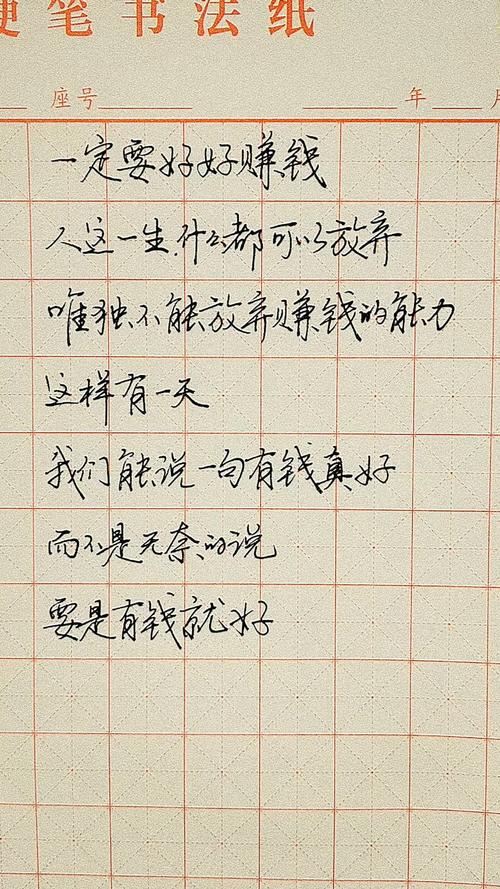 硬笔书法纸
座号 年 月
一定要好好赚钱
人这一生,什么都可以放弃
唯独不能放弃赚钱的能力
这样有一天
我们能说一句有钱真好
而不是无奈的说
要是有钱就好